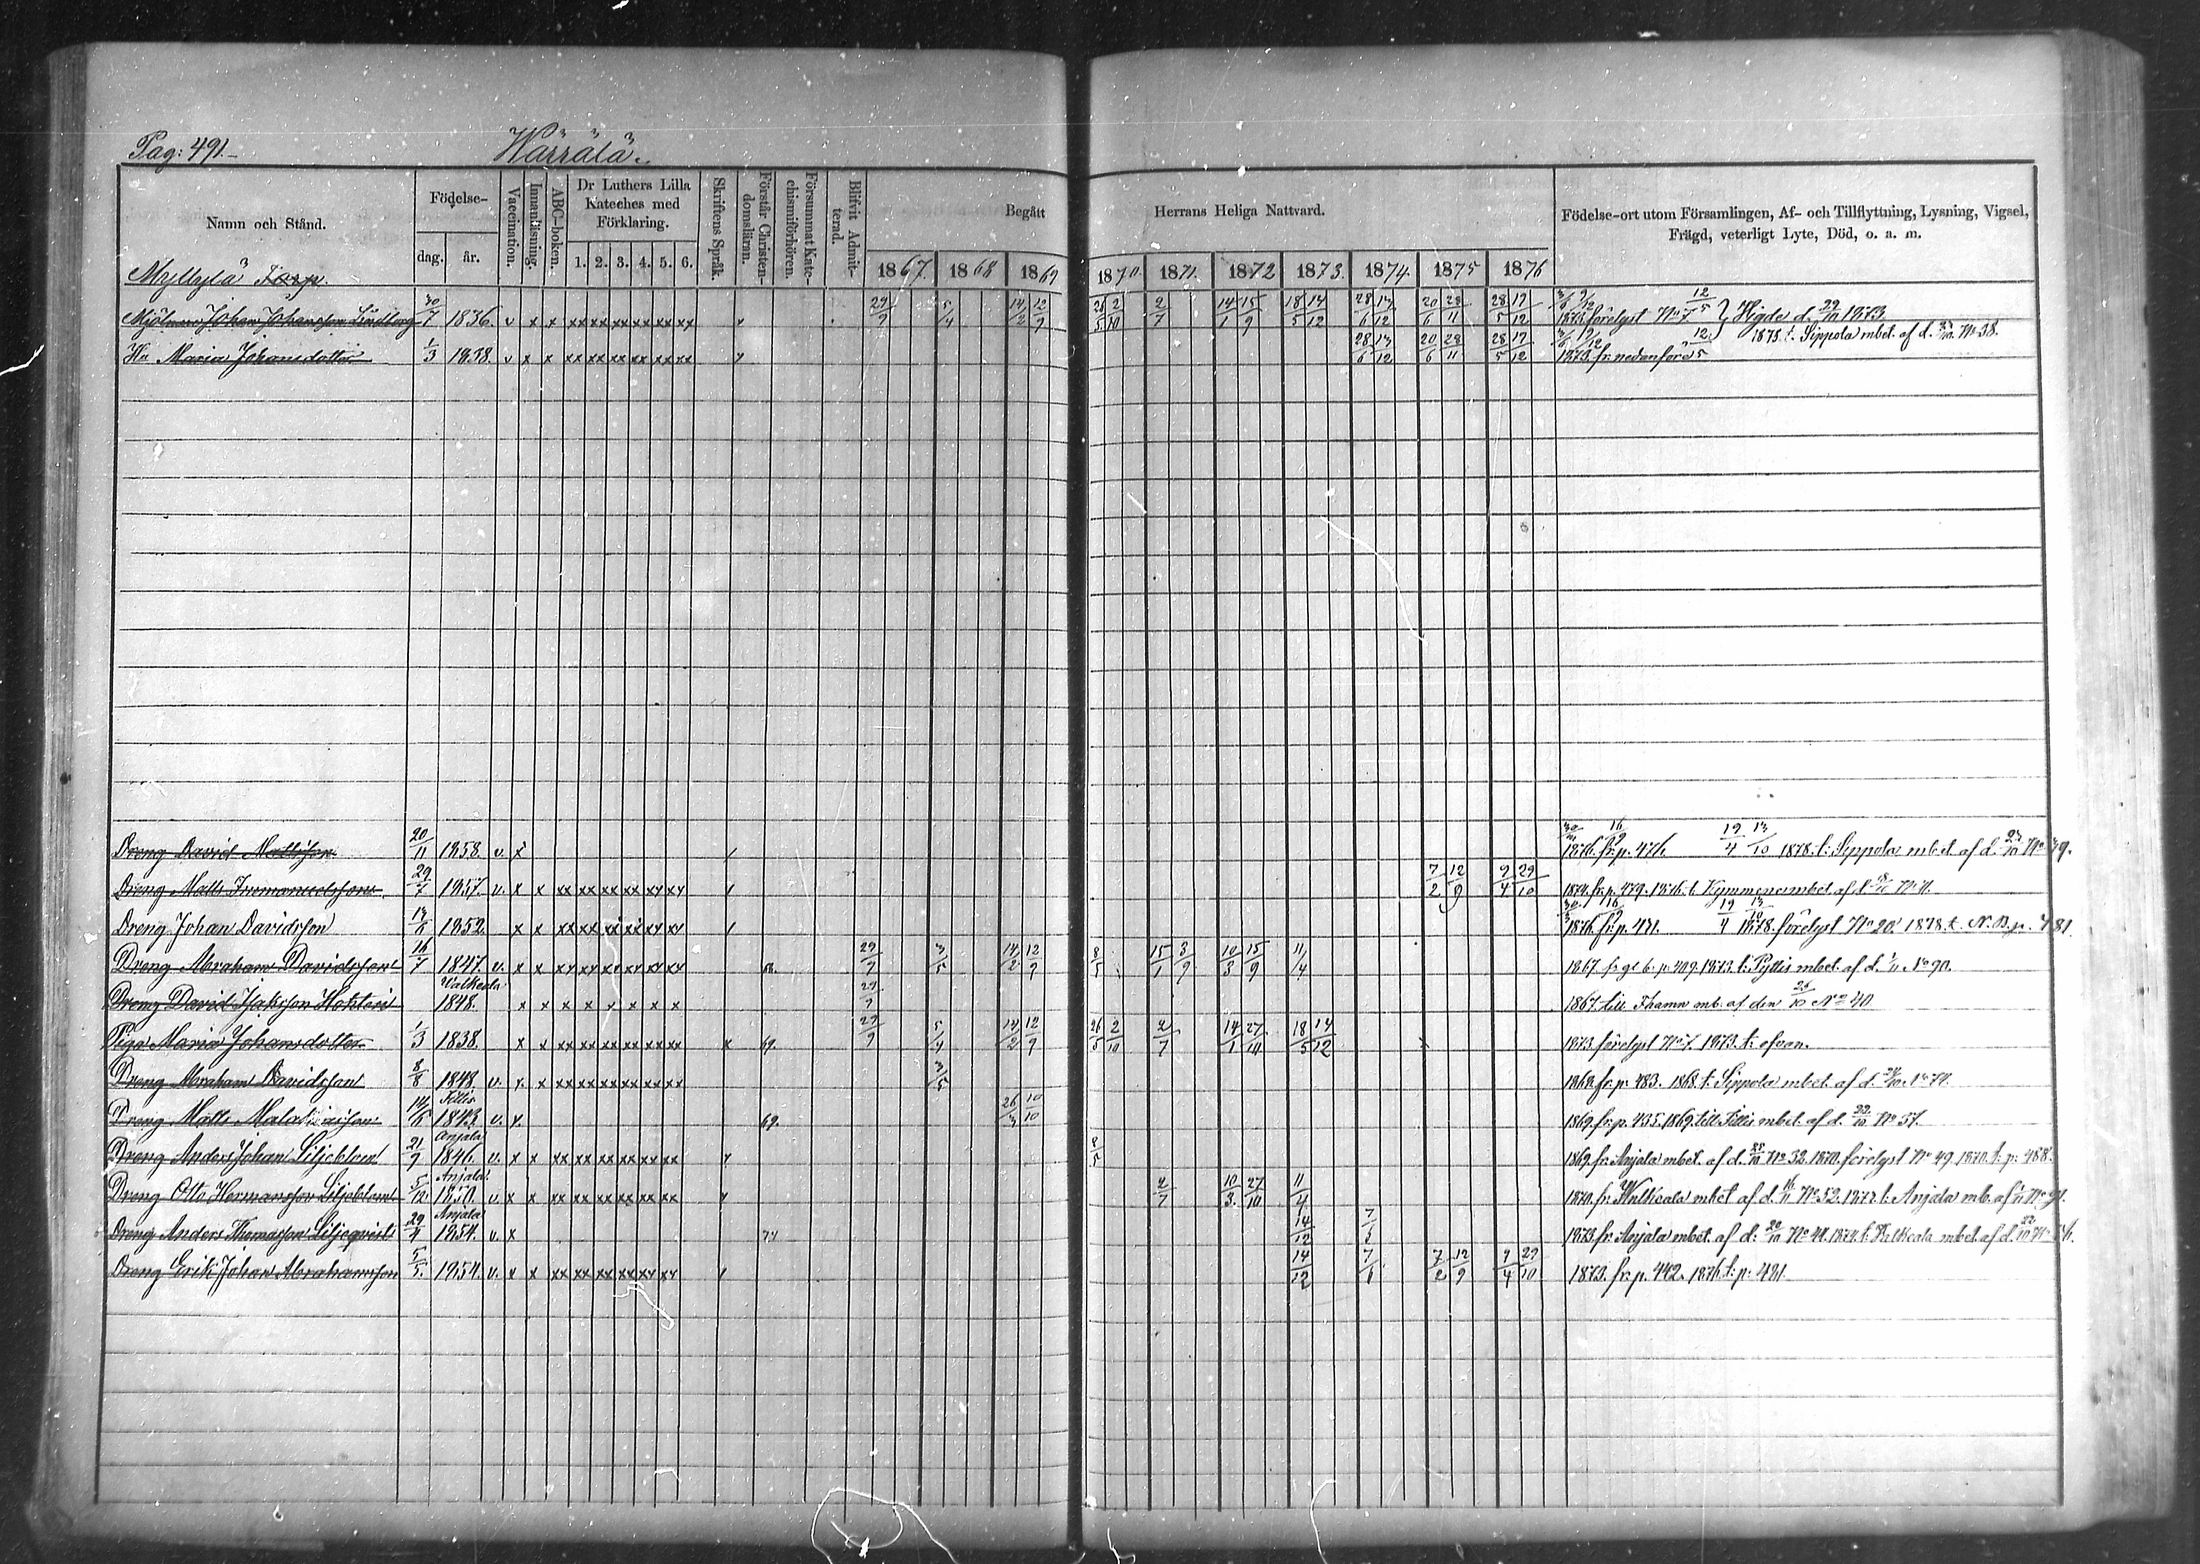 Pag: 491.
Wärrälä.
Namn och Stånd.
Födelse-
dag.
år.
Vaccination.
Innanläsning.
ABC-boken.
Dr Luthers Lilla Kateches med Förklaring.
1. 2. 3. 4. 5. 6.
Skriftens Språk.
Förstår Christen-domsläran.
Försummat Kate-chismiförhören.
Blifvit Admit-terad.
Begått Herrans Heliga Nattvard.
1867. 1868 1869 1870. 1871. 1872 1873. 1874. 1875 1876
Födelse-ort utom Församlingen, Af- och Tillflyttning, Lysning, Vigsel, Frägd, veterligt Lyte, Död, o. a. m.
Myllylä Torp.
Mjölnare Johan Johansson Lindberg 30/7 1836. v x x xx xx xx xx xx xx 29/9 5/4 14/2 12/9 26/5 2/10 2/7 14/1 15/9 18/5 14/12 28/6 13/12 20/6 28/11 28/5 17/12 1873 förelyst No 7 12/5 } Wigde d. 29/10 1873
Hu Maria Johansdotter 1/3 1838. v x x xx xx xx xx xx xx 28/6 13/12 20/6 28/11 28/5 17/12 1873. fr. nedanföre 12/5 t. Sippola mbet. af d. No 38.
Dreng David Mattsson 20/11 1858. v. x 1876. fr. p. 476. 19/4 13/10 1878. t. Sippola mbet. af d. 23/10 No 79.
Dreng Matts Immanuelsson 29/7 1857. v. x x xx xx xx xx xx xx 7/2 12/9 9/4 29/10 1874. fr. p. 479. 1876. t. Kymmene mbet. af d.
Dreng Johan Davidsson 1852 x x xx xx xx xx xx xx 1876. fr. p. 471. 19/4 13/10 1878. förelyst No 20. 1878. t. N. B. p. 781
Dreng Abraham Davidsson 16/7 1847. v. x x xx xx xx xx xx xx 29/9 3/5 14/2 12/9 8/5 15/1 3/9 10/3 15/9 11/4 1867. fr. gl. b. p. 409. 1873. t. Pyttis mbet. af d. 1/11 No 90.
Dreng David Jaksson Valkeala 1848. x x x x x x x x 1867. till Fhamn mb. af den 25/10 No 40
Piga Maria Johansdotter 1/3 1838. x x xx xx xx xx xx xx x 69. 29/9 5/4 14/2 12/9 26/5 2/10 2/7 14/1 27/10 18/5 14/12 1873. förelyst No 7. 1873. t. ofvan.
Dreng Abraham Davidsson 8/8 1848. v. x. x xx xx xx xx xx xx 3/5 1868. fr. p. 483. 1868. t. Sippola mbet. af d. 24/10. No 74.
Dreng Matts 14/6 1843. v. x. 69. 26/3 10/10 1869. fr. p. 435. 1869. till mbet. af d. 22/10 No 37.
Dreng Anders Johan Liljeblom 21/9 Anjala 1846. v. x x xx xx xx xx xx xx 8/5 1869. fr. Anjala mbet. af d. No 32. 1870. förelyst No 49. 1870. t. p. 488.
Dreng Otto Hermansson Liljeblom 5/12. Anjala 1850. v. x x xx xx xx xx xx xx 2/7 10/3. 27/10 11/4 1870. fr. Walkeala mbet af d. No 52. 1873 t. Anjala mb. af 1/11 No 91.
Dreng Anders Thomasson Liljeqvist 29/4 Anjala 1854. v. x 74 14/12 7/6 1873. fr. Anjala mbet. af d. 20/10 No 41. 1874. t. Walkeala mbet. af d. 22/10 No
Dreng Erik Johan Abrahamsson 5/5. 1954. v. x x xx xx xx xx xx xx 14/12 7/6 7/2 12/9 9/4 29/10 1873. fr. p. 442. 1876. t. p. 481